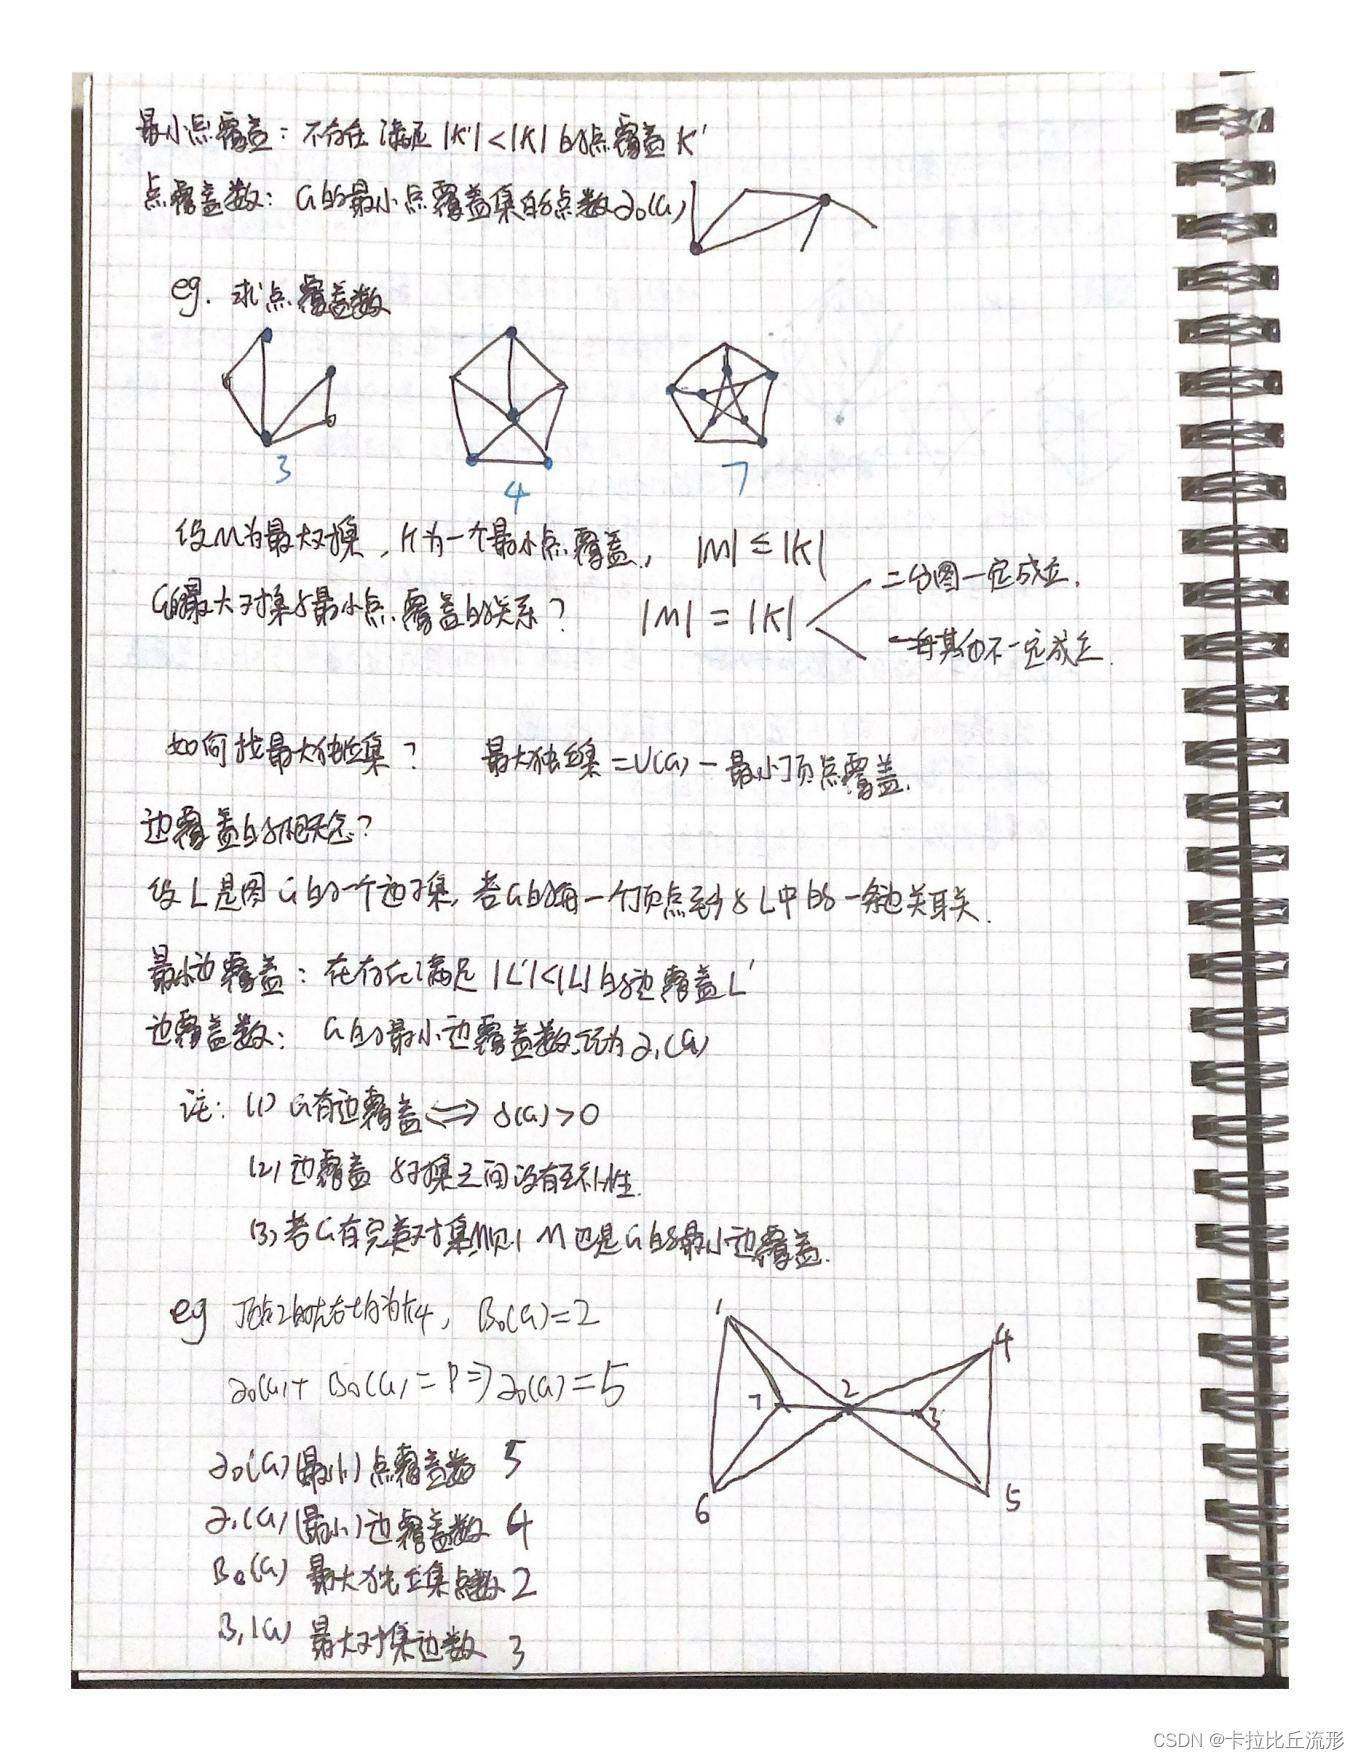 最小点覆盖：不存在满足|K'|<|K|的点覆盖K'
点覆盖数：G的最小点覆盖集的点数α₀(G)
eg. 求点覆盖数
3 4 7
设M为最大对集，K为一个最小点覆盖，|M|≤|K|
G的最大对集与最小点覆盖的关系？ |M|=|K| 二分图一定成立.
其他不一定成立.
如何找最大独立集？ 最大独立集=V(G)-最小顶点覆盖.
边覆盖的相关概念？
设L是图G的一个边子集,若G的每一个顶点至少与L中的一条边关联.
最小边覆盖：不存在满足|L'|<|L|的边覆盖L'
边覆盖数：G的最小边覆盖数,记为α₁(G)
注：(1) G有边覆盖⟺δ(G)>0
(2) 边覆盖与对集之间没有互补性.
(3) 若G有完美对集M则M也是G的最小边覆盖.
eg 顶点2的左右均为K4, B₀(G)=2
α₀(G)+B₀(G)=P⇒α₀(G)=5
α₀(G)(最小)点覆盖数 5
α₁(G)(最小)边覆盖数 4
B₀(G) 最大独立集点数 2
B₁(G) 最大对集边数 3
1
4
7 2 3
6 5
CSDN @卡拉比丘流形